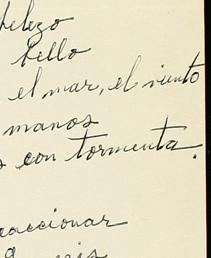 belezo
bello
el mar, el viento
manos
s con tormenta.
eaccionar